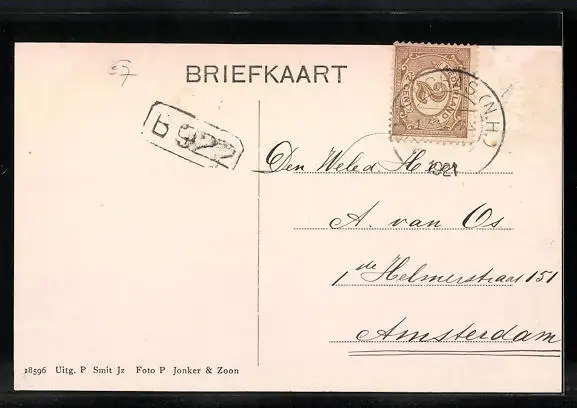 57
BRIEFKAART
B 922
S. (N.H.)
1921
NEDERLAND
2½
CENT
Den Weled Heer
A. van Os
1de Helmerstraat 151
Amsterdam
18596 Uitg. P Smit Jz Foto P Jonker & Zoon